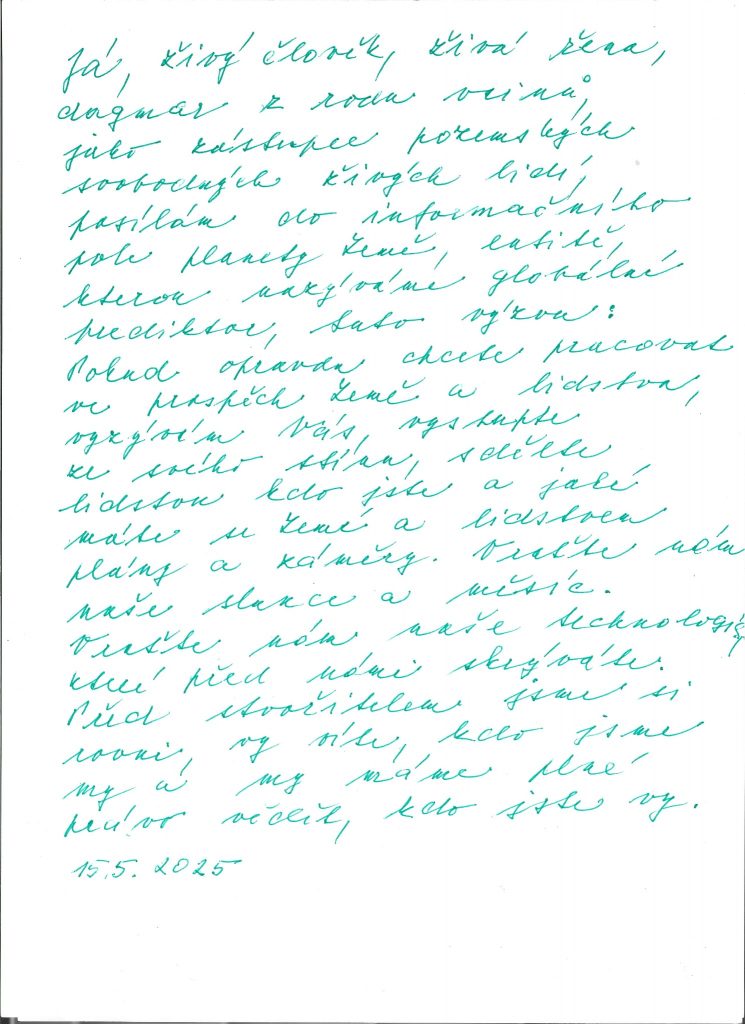 Já, živý člověk, živá žena,
dagmar z rodu vrinů,
jako zástupce pozemských
svobodných živých lidí,
posílám do informačního
pole planety Země, entitě,
kterou nazýváme globální
prediktor, tuto výzvu:
Pokud opravdu chcete pracovat
ve prospěch Země a lidstva,
vyzývám Vás, vystupte
ze svého stínu, sdělte
lidstvu kdo jste a jaké
máte se Zemí a lidstvem
plány a záměry. Vraťte nám
naše slunce a měsíc.
Vraťte nám naše technologie,
které před námi skrýváte.
Před stvořitelem jsme si
rovni, vy víte, kdo jsme
my a my máme plné
právo vědět, kdo jste vy.
15.5. 2025